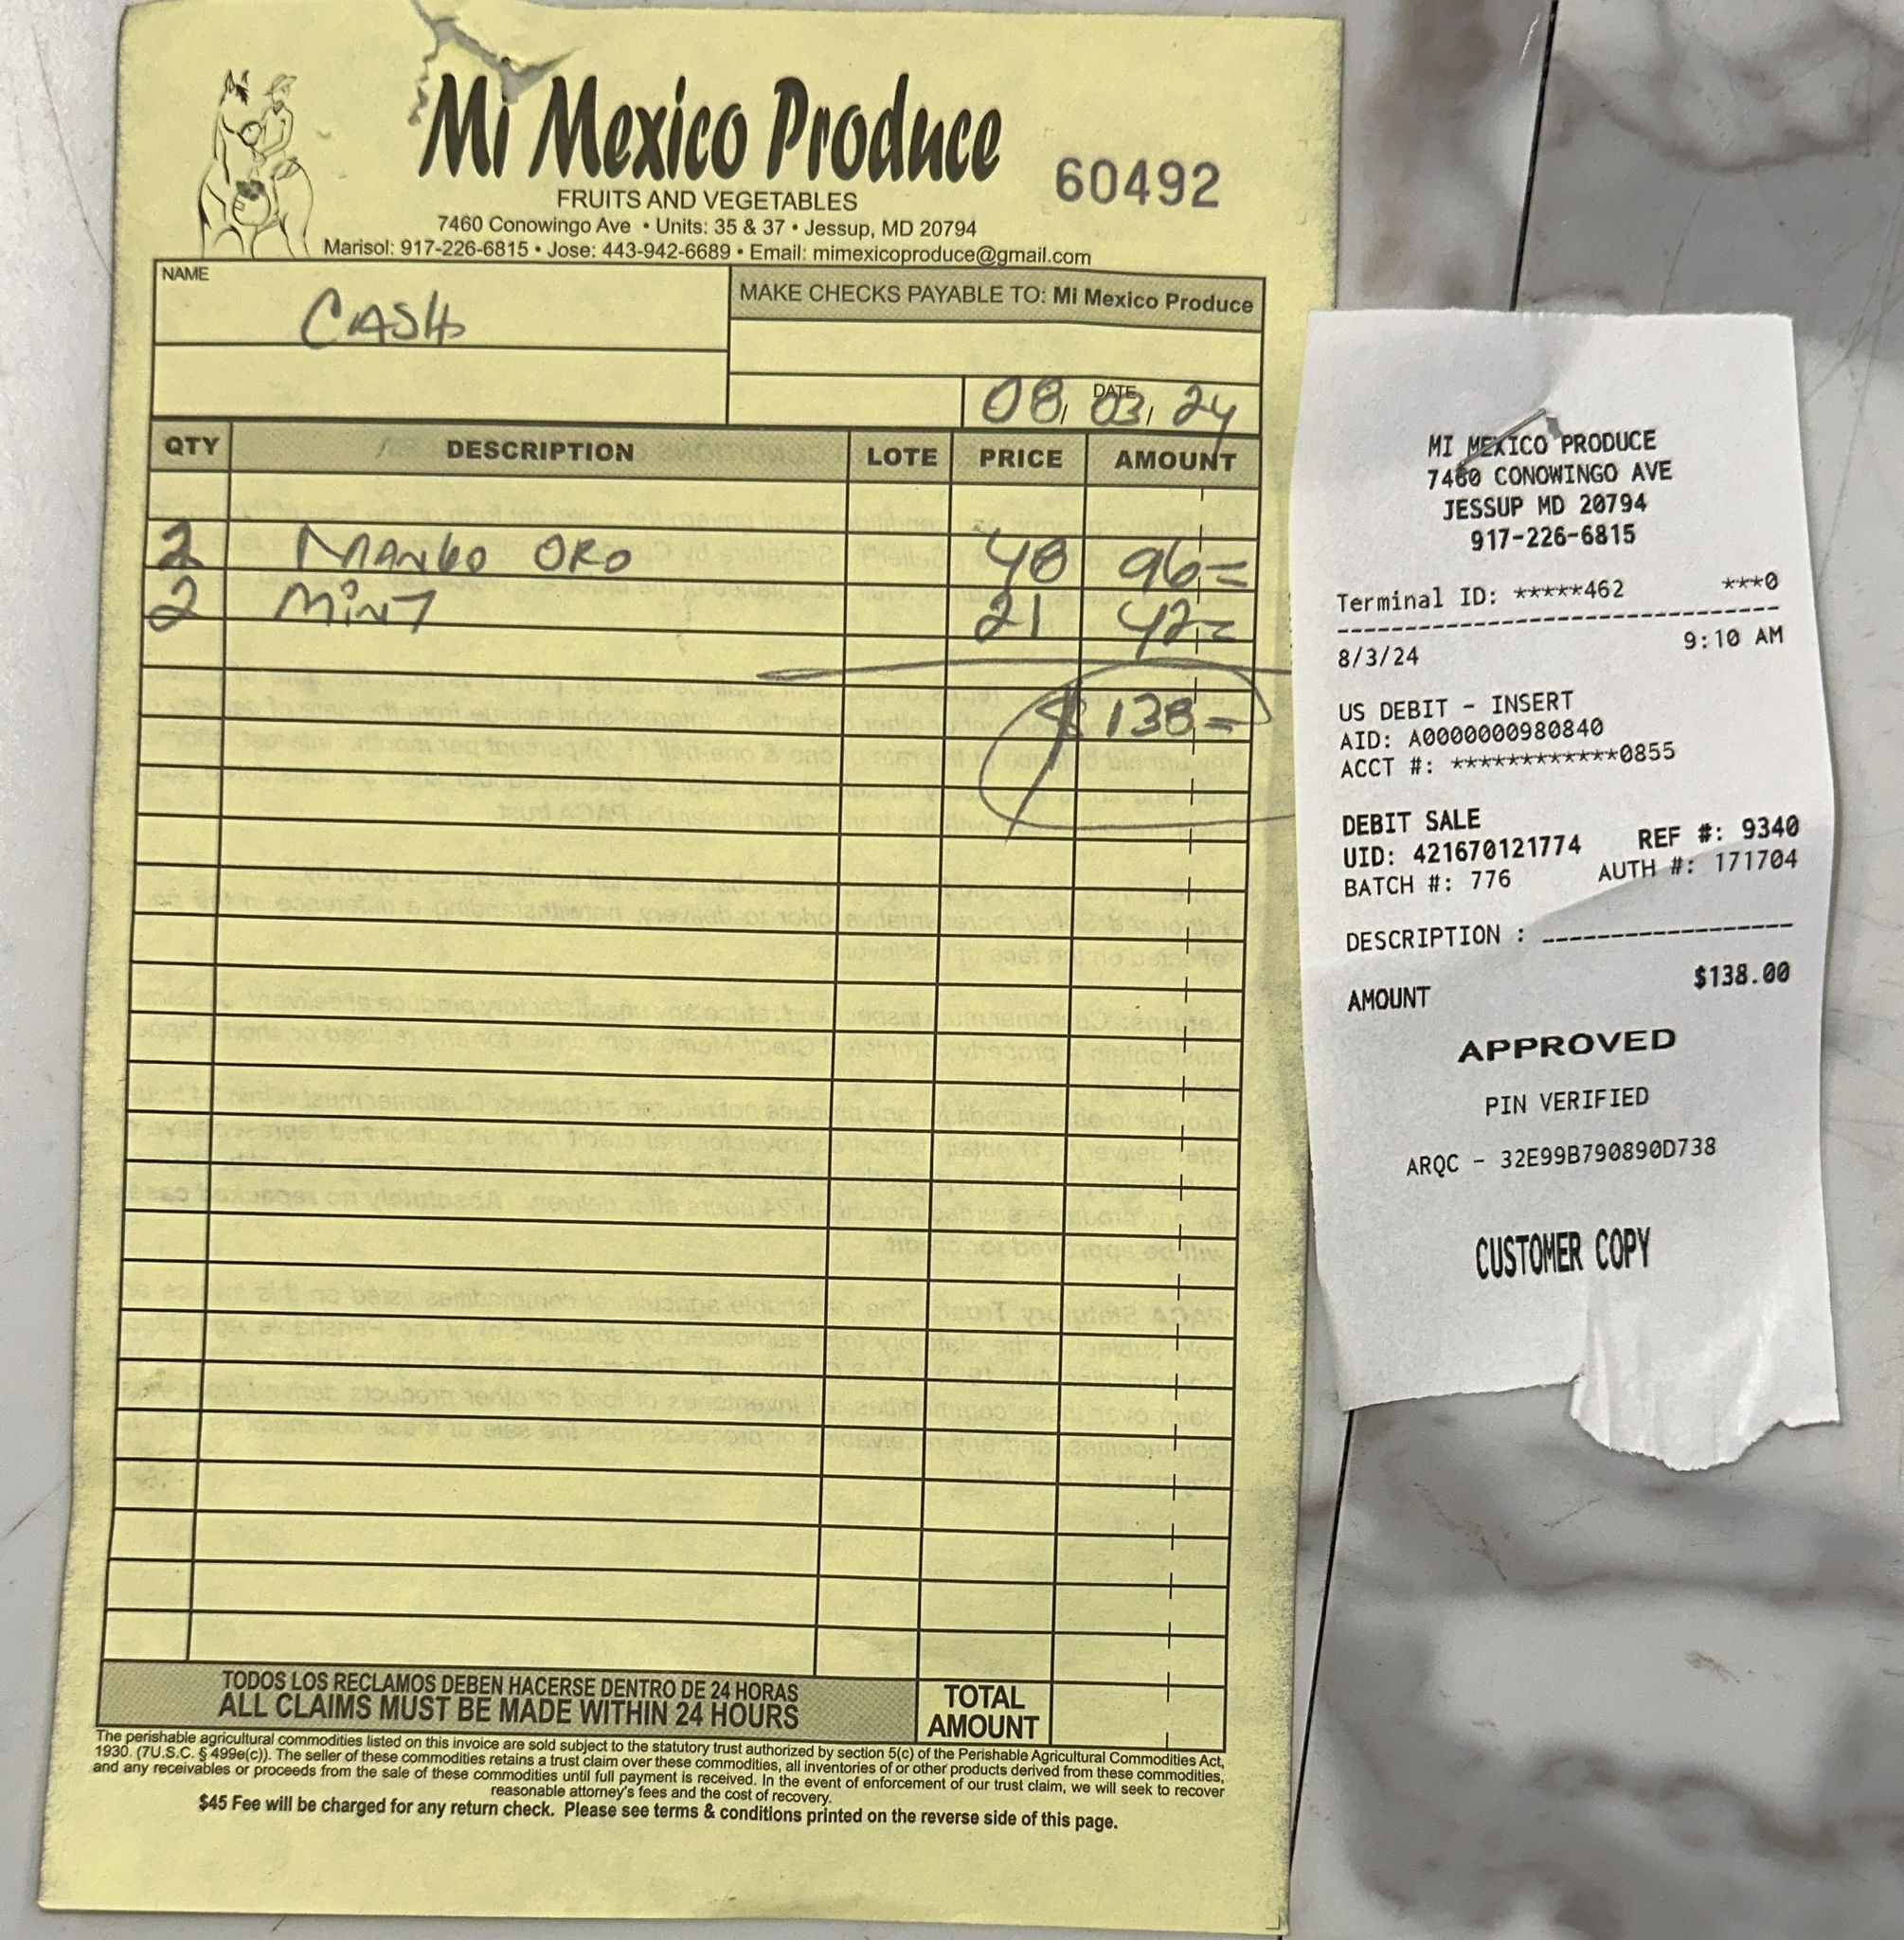 Mi Mexico Produce
60492
FRUITS AND VEGETABLES
7460 Conowingo Ave • Units: 35 & 37 • Jessup, MD 20794
Marisol: 917-226-6815 • Jose: 443-942-6689 • Email: mimexicoproduce@gmail.com
NAME
CASH
MAKE CHECKS PAYABLE TO: Mi Mexico Produce
DATE
08, 03, 24
QTY DESCRIPTION LOTE PRICE AMOUNT
2 MANGO ORO 48 96=
2 MINT 21 42=
$138=
TODOS LOS RECLAMOS DEBEN HACERSE DENTRO DE 24 HORAS
ALL CLAIMS MUST BE MADE WITHIN 24 HOURS
TOTAL
AMOUNT
The perishable agricultural commodities listed on this invoice are sold subject to the statutory trust authorized by section 5(c) of the Perishable Agricultural Commodities Act,
1930. (7U.S.C. § 499e(c)). The seller of these commodities retains a trust claim over these commodities, all inventories of or other products derived from these commodities,
and any receivables or proceeds from the sale of these commodities until full payment is received. In the event of enforcement of our trust claim, we will seek to recover
reasonable attorney's fees and the cost of recovery.
$45 Fee will be charged for any return check. Please see terms & conditions printed on the reverse side of this page.
MI MEXICO PRODUCE
7460 CONOWINGO AVE
JESSUP MD 20794
917-226-6815
Terminal ID: *****462 ***0
8/3/24 9:10 AM
US DEBIT - INSERT
AID: A0000000980840
ACCT #: ************0855
DEBIT SALE
UID: 421670121774 REF #: 9340
BATCH #: 776 AUTH #: 171704
DESCRIPTION :
AMOUNT $138.00
APPROVED
PIN VERIFIED
ARQC - 32E99B790890D738
CUSTOMER COPY